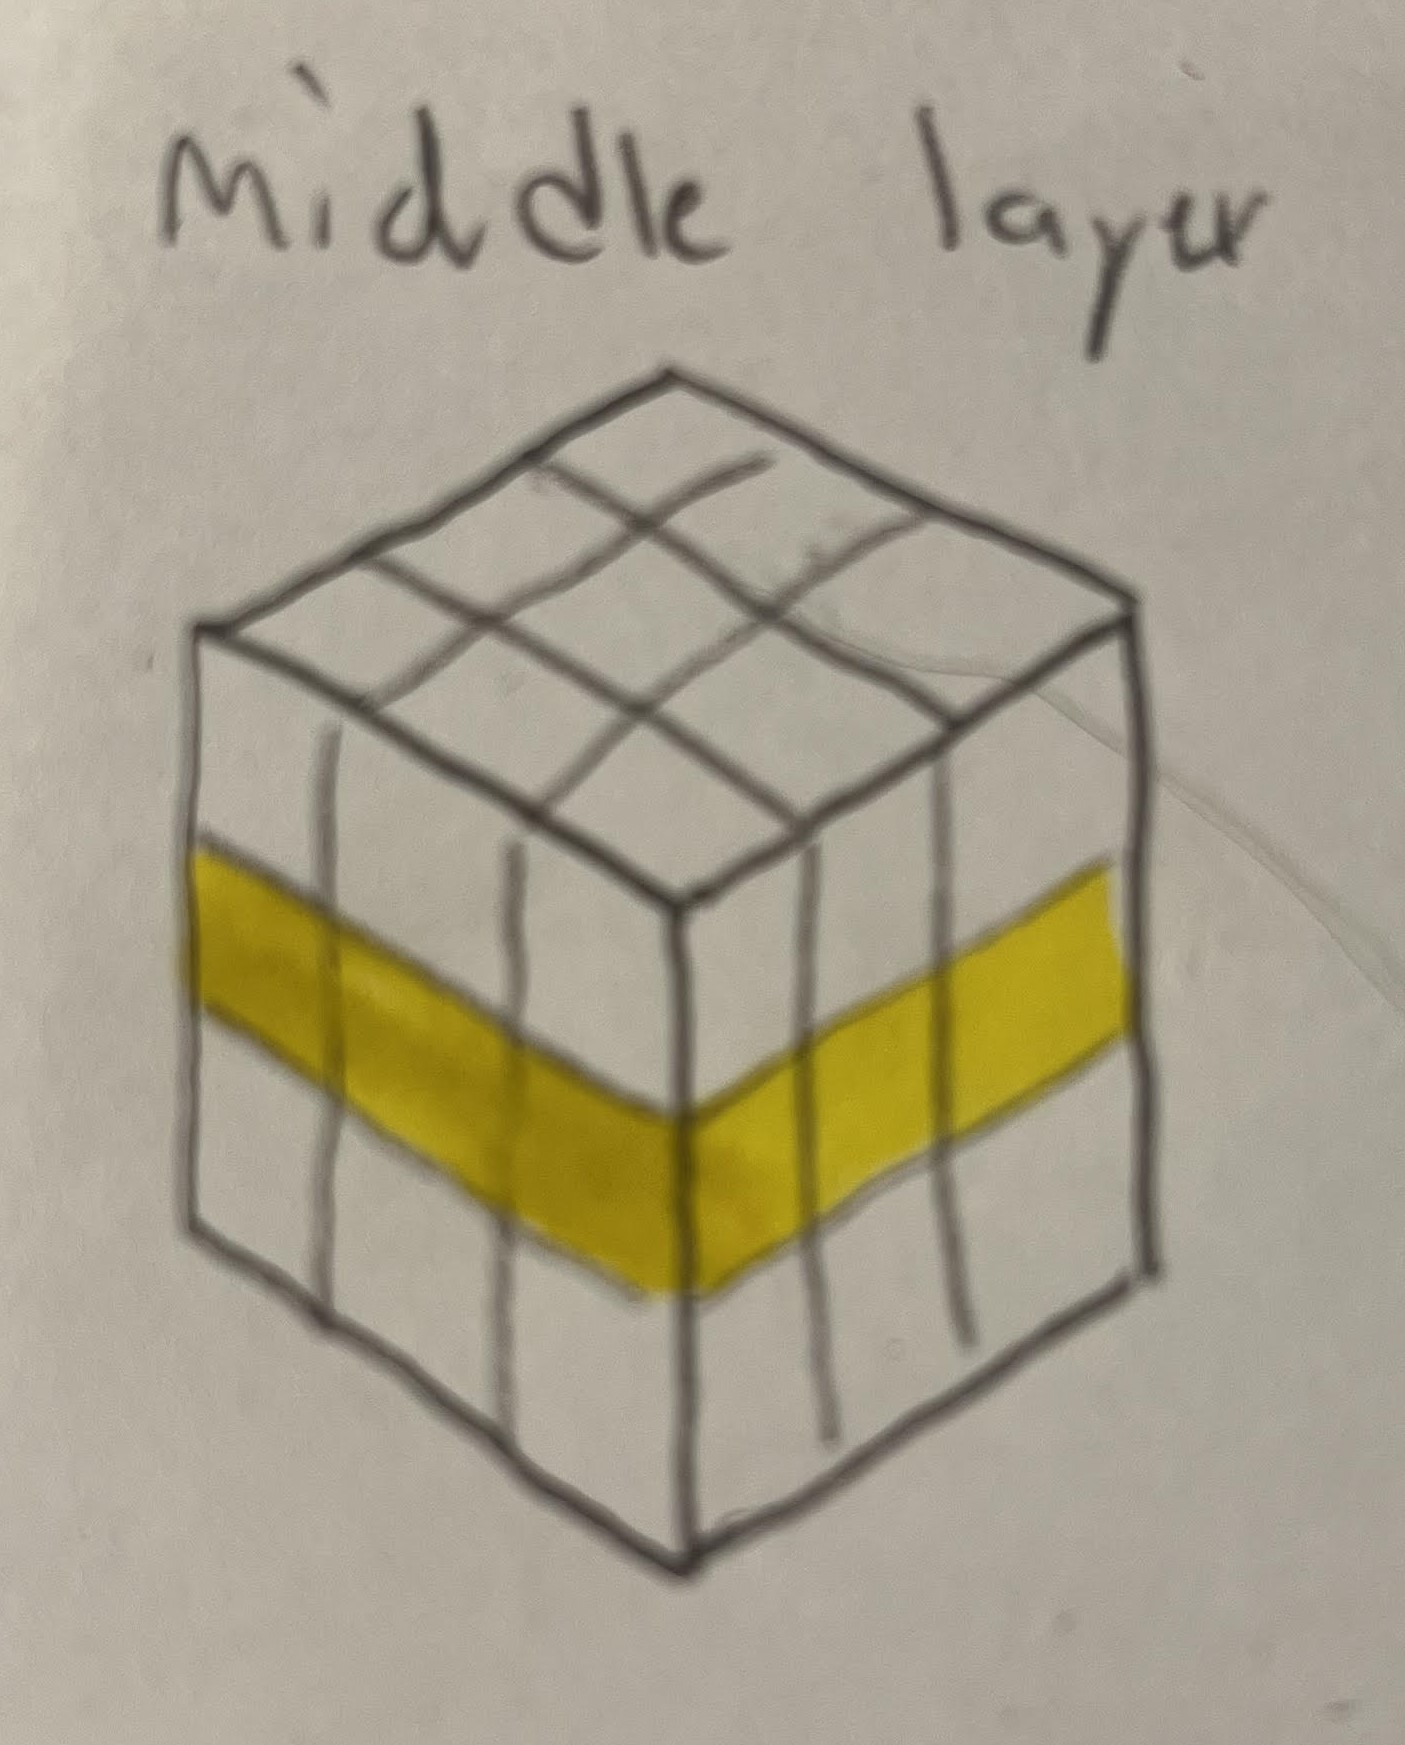 Middle layer